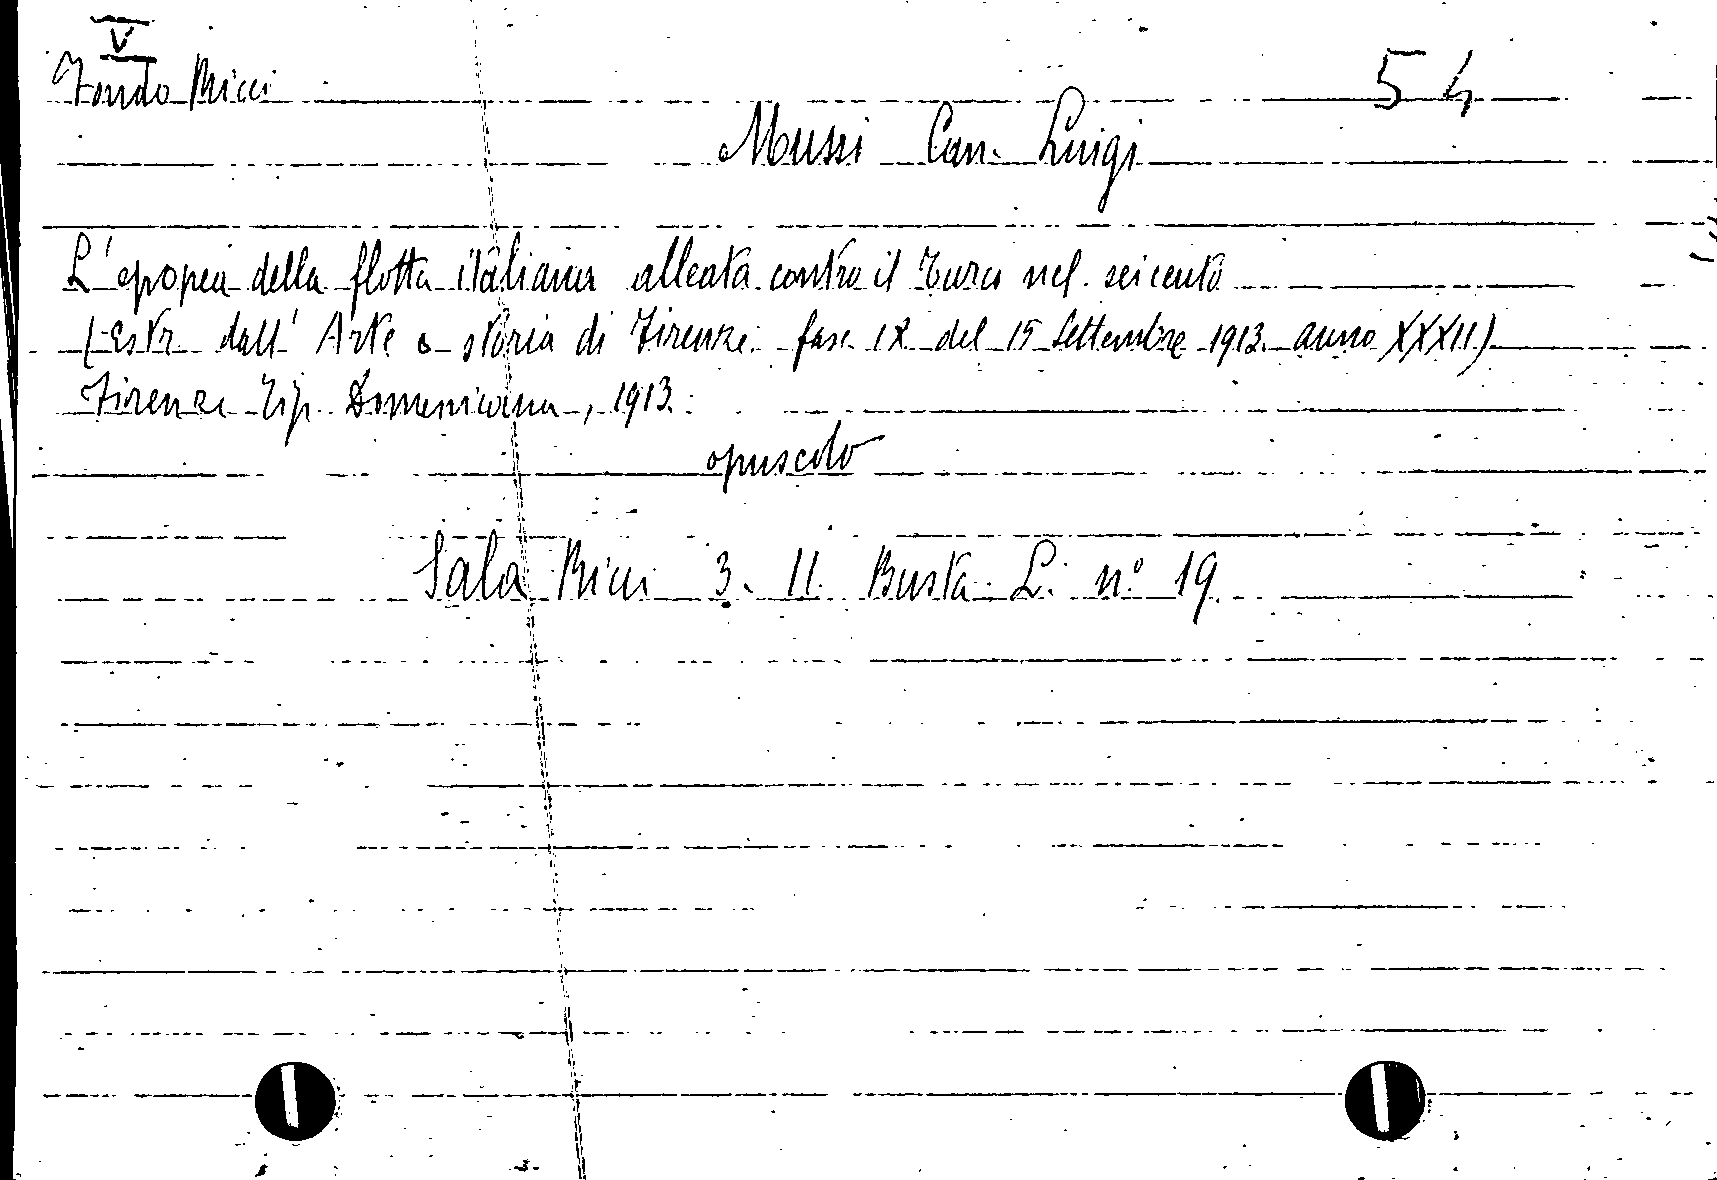 V
Fondo Ricci 54
Mussi Can. Luigi
L'epopea della flotta italiana alleata contro il Turco nel seicento
(Estr. dall' Arte e storia di Firenze. fasc. IX del 15 Settembre 1913. anno XXXII)
Firenze Tip. Domenicana, 1913.
opuscolo
Sala Ricci 3. 11. Busta L. n.° 19.